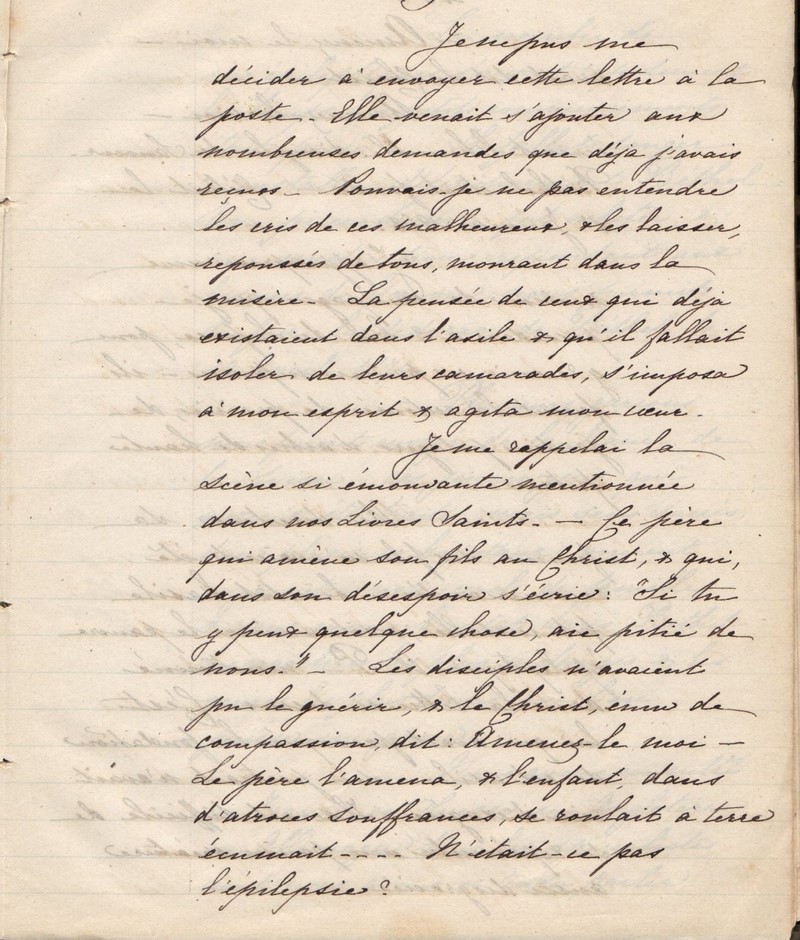 Je ne pus me
décider à envoyer cette lettre à la
poste. Elle venait s'ajouter aux
nombreuses demandes que déja j'avais
reçues - Pouvais-je ne pas entendre
les cris de ces malheureux, & les laisser,
repoussés de tous, mourant dans la
misère - La pensée de ceux qui déja
existaient dans l'asile & qu'il fallait
isoler de leurs camarades, s'imposa
à mon esprit & agita mon cœur.
Je me rappelai la
scène si émouvante mentionnée
dans nos Livres Saints. - Ce père
qui amène son fils au Christ, & qui,
dans son désespoir s'écrie: "Si tu
y peux quelque chose, aie pitié de
nous." - Les disciples n'avaient
pu le guérir, & le Christ, ému de
compassion, dit: Amenez-le moi -
Le père l'amena, & l'enfant, dans
d'atroces souffrances, se roulait à terre
écumait - - - - N'était-ce pas
l'épilepsie?